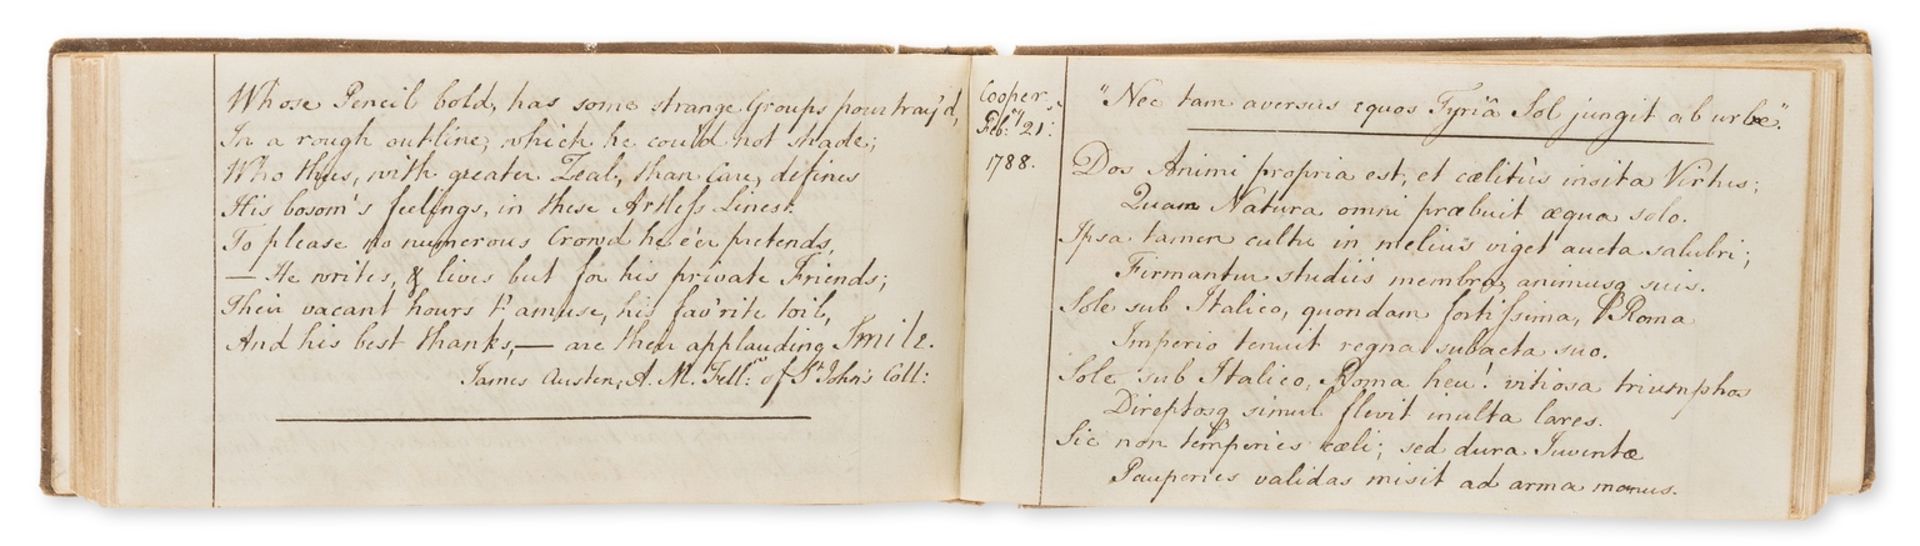 Whose Pencil bold, has some strange Groups pourtray'd,
In a rough outline, which he could not shade;
Who thus, with greater Zeal, than Care, defines
His bosom's feelings, in these Artless Lines.
To please no numerous Crowd he e'er pretends,
— He writes, & lives but for his private Friends;
Their vacant hours t' amuse, his fav'rite toil,
And his best thanks, — are their applauding Smile.
James Austen, A. M. Fell: of St. John's Coll:
Cooper
Feb: ry 21:
1788.
"Nec tam aversus equos Tyriâ Sol jungit ab urbe".
Dos Animi propria est, et cœlitùs insita Virtus;
Quam Natura omni præbuit æqua solo.
Ipsa tamen cultu in meliùs viget aucta salubri;
Firmantur studiis membra, animusq suis.
Sole sub Italico, quondam fortissima, Roma
Imperio tenuit regna subacta suo.
Sole sub Italico, Roma heu! vitiosa triumphos
Direptosq simul flevit inulta lares.
Sic non temperies cœli; sed dura Juventæ
Pauperies validas misit ad arma manus.